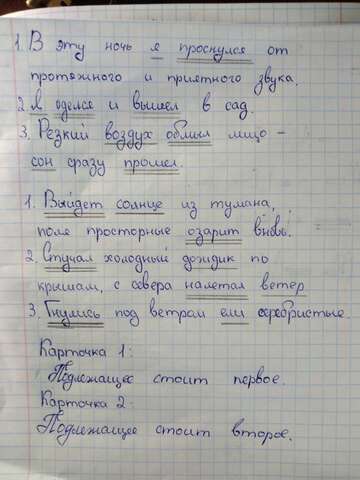 1. В эту ночь я проснулся от
протяжного и приятного звука.
2. Я оделся и вышел в сад.
3. Резкий воздух обмыл лицо –
сон сразу прошел.
1. Выйдет солнце из тумана,
поле просторные озарит вновь.
2. Стучал холодный дождик по
крышам, с севера налетал ветер
3. Гнулись под ветром ели серебристые.
Карточка 1:
Подлежащее стоит первое.
Карточка 2:
Подлежащее стоит второе.